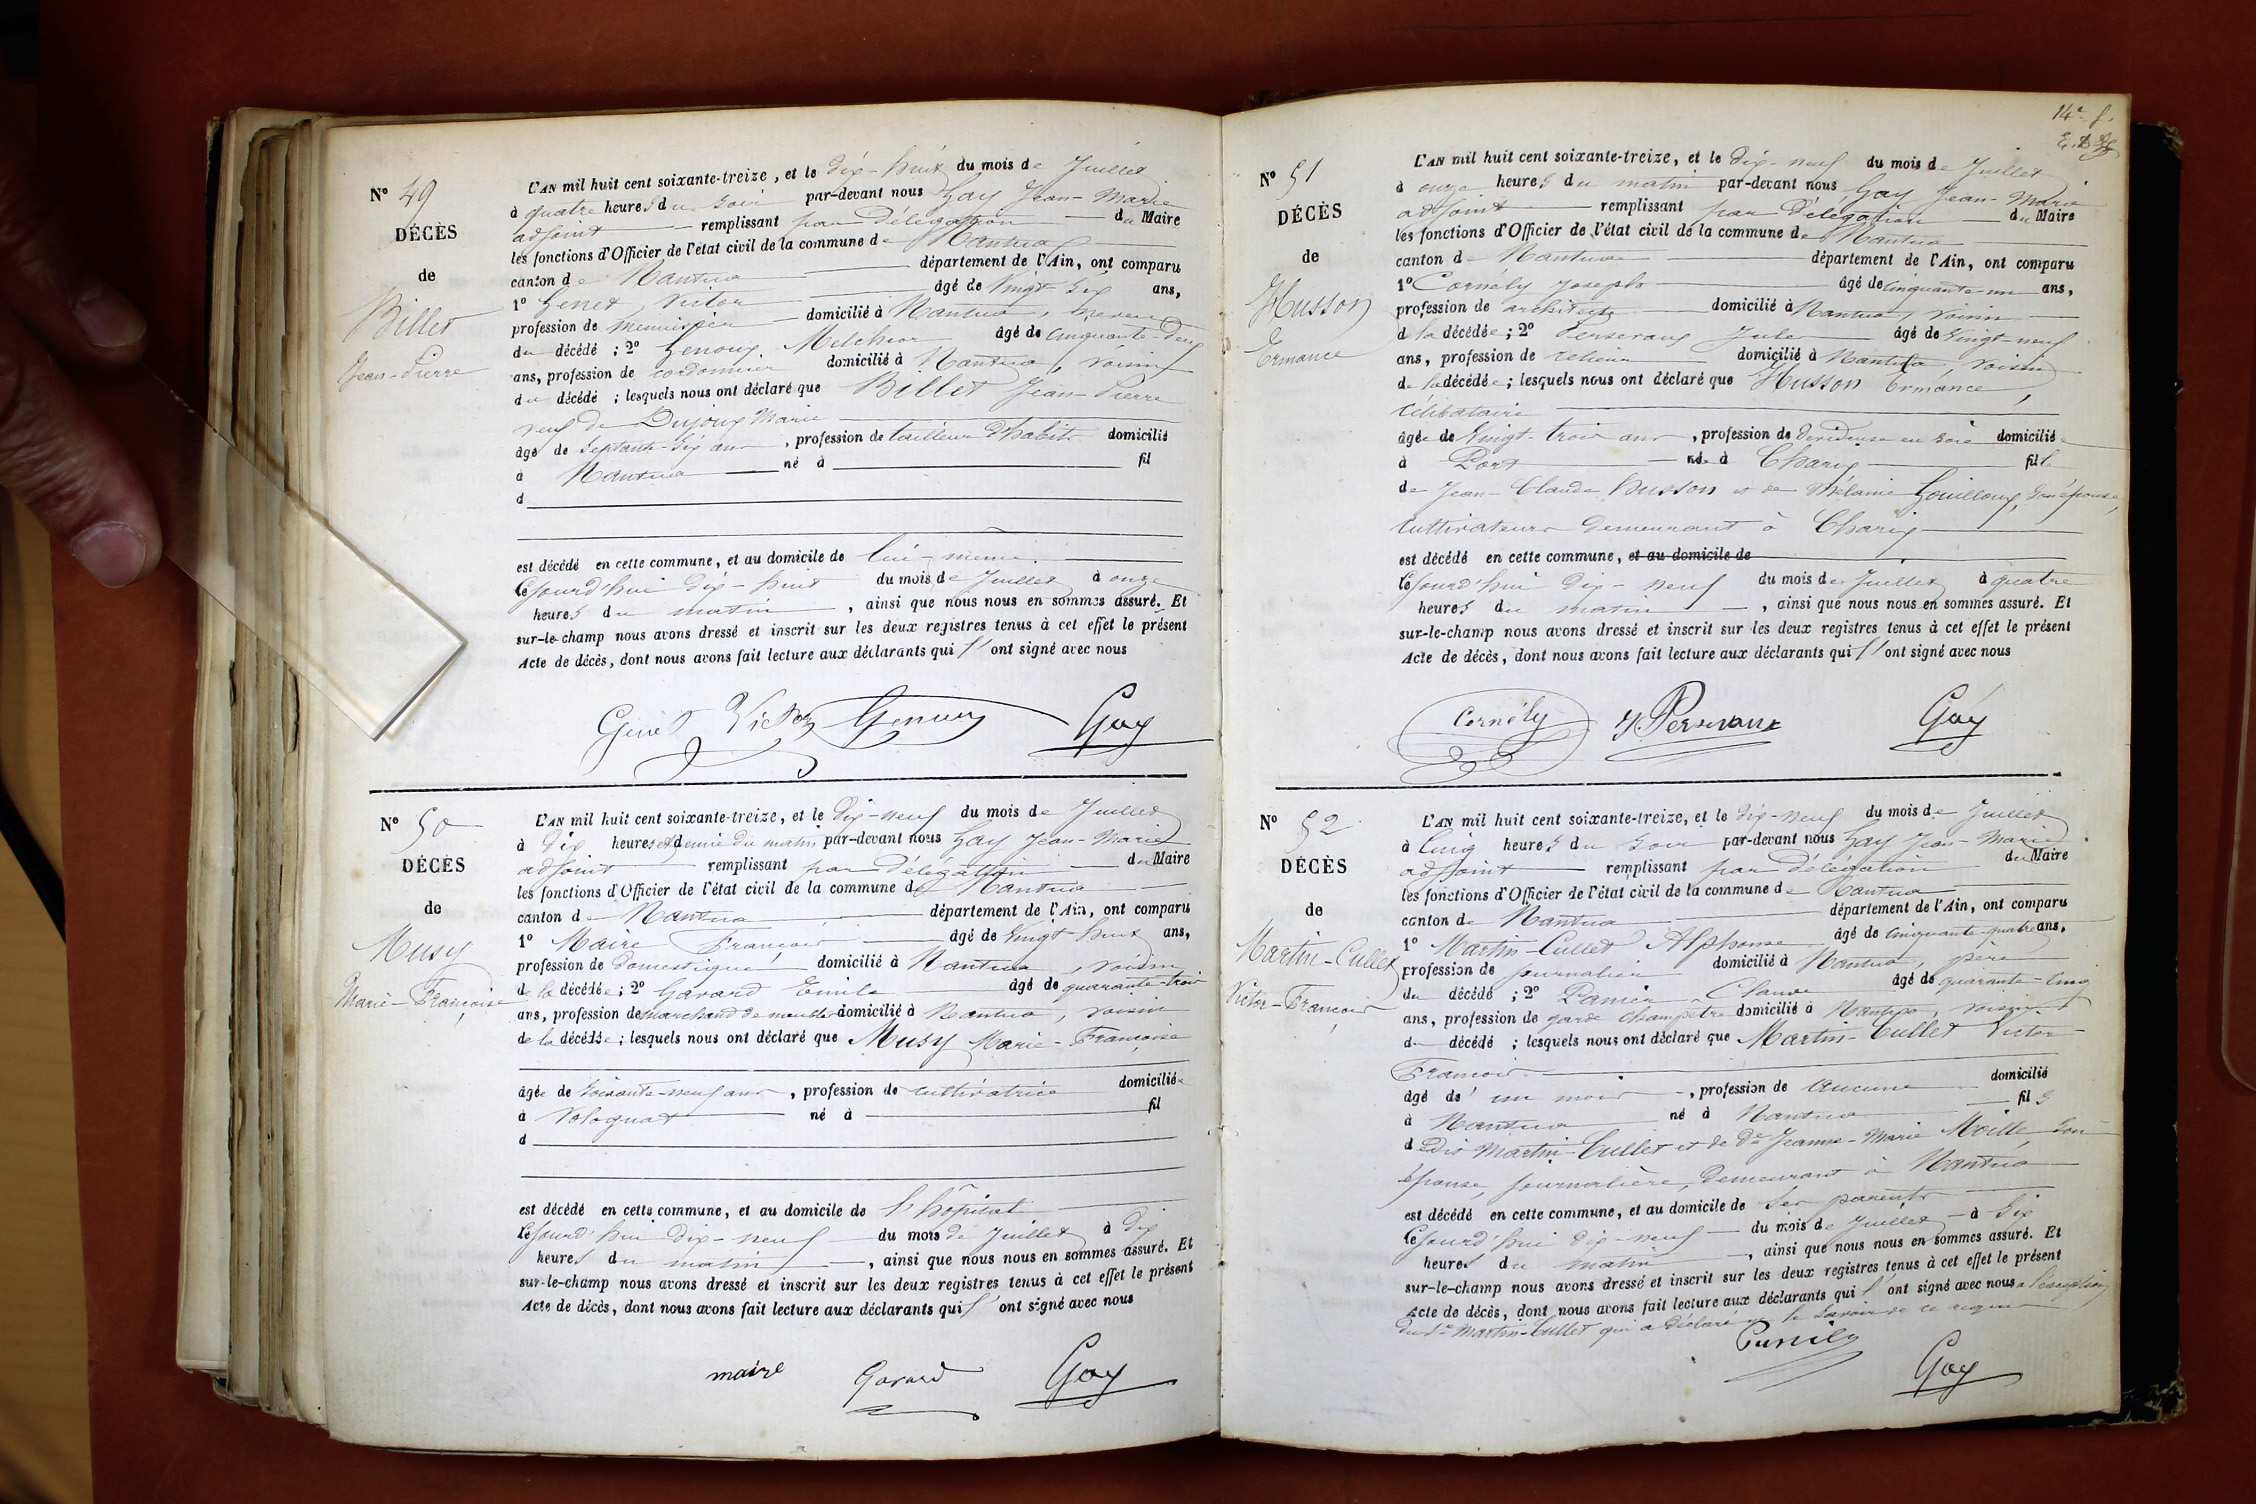 N° 49
DÉCÈS
de
Billet
Jean-Pierre
L'AN mil huit cent soixante-treize, et le dix-huit du mois de Juillet
à quatre heures du soir par-devant nous Gay Jean-Marie
adjoint remplissant par délégation du Maire
les fonctions d'Officier de l'état civil de la commune de Nantua
canton de Nantua département de l'Ain, ont comparu
1° Genet Victor âgé de vingt-six ans,
profession de menuisier domicilié à Nantua, neveu
du décédé ; 2° Genoux Melchior âgé de cinquante-deux
ans, profession de cordonnier domicilié à Nantua, voisin
du décédé ; lesquels nous ont déclaré que Billet Jean-Pierre
veuf de Dujoux Marie
âgé de septante-six ans, profession de tailleur d'habits domicilié
à Nantua né à fil
d
est décédé en cette commune, et au domicile de lui-même
le jourd'hui dix-huit du mois de Juillet à onze
heures du matin, ainsi que nous nous en sommes assuré. Et
sur-le-champ nous avons dressé et inscrit sur les deux registres tenus à cet effet le présent
Acte de décès, dont nous avons fait lecture aux déclarants qui l'ont signé avec nous
Genet Victor Genoux Gay
N° 50
DÉCÈS
de
Musy
Marie-Françoise
L'AN mil huit cent soixante-treize, et le dix-neuf du mois de Juillet
à dix heures et demie du matin par-devant nous Gay Jean-Marie
adjoint remplissant par délégation du Maire
les fonctions d'Officier de l'état civil de la commune de Nantua
canton de Nantua département de l'Ain, ont comparu
1° Maire François âgé de vingt-huit ans,
profession de domestique domicilié à Nantua, voisin
de la décédée ; 2° Gavard Emile âgé de quarante-trois
ans, profession de marchand de meubles domicilié à Nantua, voisin
de la décédée ; lesquels nous ont déclaré que Musy Marie-Françoise
âgée de soixante-neuf ans, profession de cultivatrice domiciliée
à Volognat né à fil
d
est décédé en cette commune, et au domicile de l'hôpital
le jourd'hui dix-neuf du mois de Juillet à dix
heures du matin, ainsi que nous nous en sommes assuré. Et
sur-le-champ nous avons dressé et inscrit sur les deux registres tenus à cet effet le présent
Acte de décès, dont nous avons fait lecture aux déclarants qui l'ont signé avec nous
maire Gavard Gay
14e f.
N° 51
DÉCÈS
de
Husson
Ermance
L'AN mil huit cent soixante-treize, et le dix-neuf du mois de Juillet
à onze heures du matin par-devant nous Gay Jean-Marie
adjoint remplissant par délégation du Maire
les fonctions d'Officier de l'état civil de la commune de Nantua
canton de Nantua département de l'Ain, ont comparu
1° Cornély Joseph âgé de cinquante-un ans,
profession de architecte domicilié à Nantua, voisin
de la décédée ; 2° Perseraux Jules âgé de vingt-neuf
ans, profession de relieur domicilié à Nantua, voisin
de la décédée ; lesquels nous ont déclaré que Husson Ermance,
célibataire
âgée de vingt-trois ans, profession de dévideuse en soie domiciliée
à Port née à Charix fille
de Jean-Claude Husson et de Mélanie Gouilloux, son épouse,
cultivateurs demeurant à Charix
est décédé en cette commune, et au domicile de
le jourd'hui dix-neuf du mois de Juillet à quatre
heures du matin, ainsi que nous nous en sommes assuré. Et
sur-le-champ nous avons dressé et inscrit sur les deux registres tenus à cet effet le présent
Acte de décès, dont nous avons fait lecture aux déclarants qui l'ont signé avec nous
Cornély J. Perseraux Gay
N° 52
DÉCÈS
de
Martin-Cullet
Victor-François
L'AN mil huit cent soixante-treize, et le dix-neuf du mois de Juillet
à cinq heures du soir par-devant nous Gay Jean-Marie
adjoint remplissant par délégation du Maire
les fonctions d'Officier de l'état civil de la commune de Nantua
canton de Nantua département de l'Ain, ont comparu
1° Martin-Cullet Alphonse âgé de cinquante-quatre ans,
profession de journalier domicilié à Nantua, père
du décédé ; 2° Claude âgé de quarante-cinq
ans, profession de garde champêtre domicilié à Nantua, voisin
du décédé ; lesquels nous ont déclaré que Martin-Cullet Victor-
François
âgé de un mois, profession de aucune domicilié
à Nantua né à Nantua fils
dudit Martin-Cullet et de De Jeanne-Marie Moille son
épouse, journalière, demeurant à Nantua
est décédé en cette commune, et au domicile de ses parents
le jourd'hui dix-neuf du mois de Juillet à six
heures du matin, ainsi que nous nous en sommes assuré. Et
sur-le-champ nous avons dressé et inscrit sur les deux registres tenus à cet effet le présent
Acte de décès, dont nous avons fait lecture aux déclarants qui l'ont signé avec nous à l'exception
du Sr Martin-Cullet qui a déclaré ne le savoir de ce requis
Gay